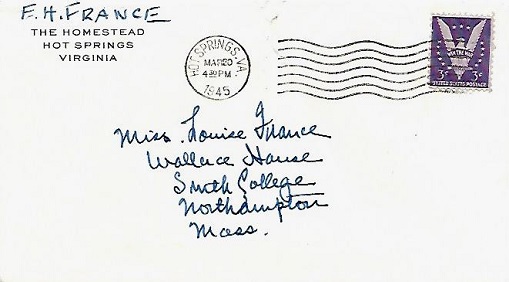 F. H. FRANCE
THE HOMESTEAD
HOT SPRINGS
VIRGINIA
HOT SPRINGS. VA.
MAR 20
4 30 PM
1945
WIN THE WAR
3¢ 3¢
UNITED STATES POSTAGE
Miss. Louise France
Wallace House
Smith College
Northampton
Mass.